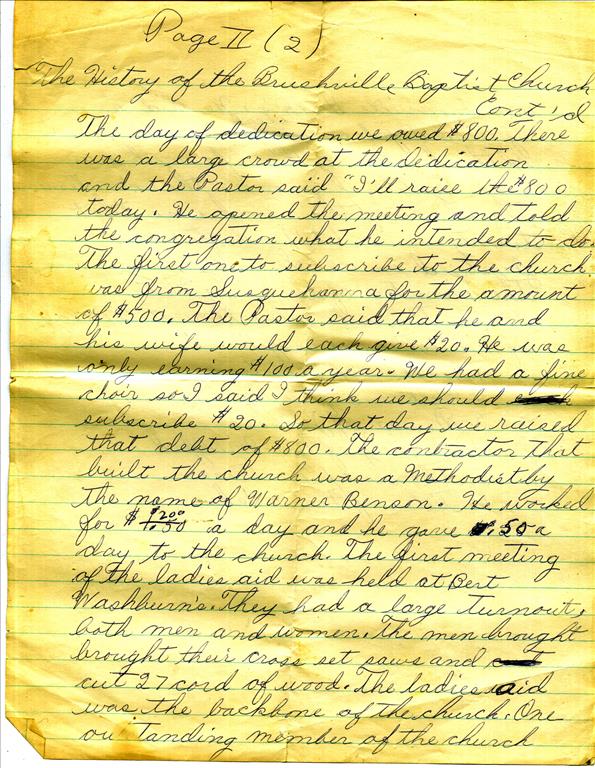 Page II (2)
The History of the Brushville Baptist Church
Cont'd
The day of dedication we owed $800. There
was a large crowd at the dedication
and the Pastor said "I'll raise the $800
today. He opened the meeting and told
the congregation what he intended to do.
The first one to subscribe to the church
was from Susquehanna for the amount
of $500. The Pastor said that he and
his wife would each give $20. He was
only earning $100 a year. We had a fine
choir so I said I think we should
subscribe $20. So that day we raised
that debt of $800. The contractor that
built the church was a Methodist by
the name of Warner Benson. He worked
for $2.00 a day and he gave .50 a
day to the church. The first meeting
of the ladies aid was held at Bert
Washburn's. They had a large turnout,
both men and women. The men brought
brought their cross set saws and
cut 27 cord of wood. The ladies aid
was the backbone of the church. One
ou tanding member of the church